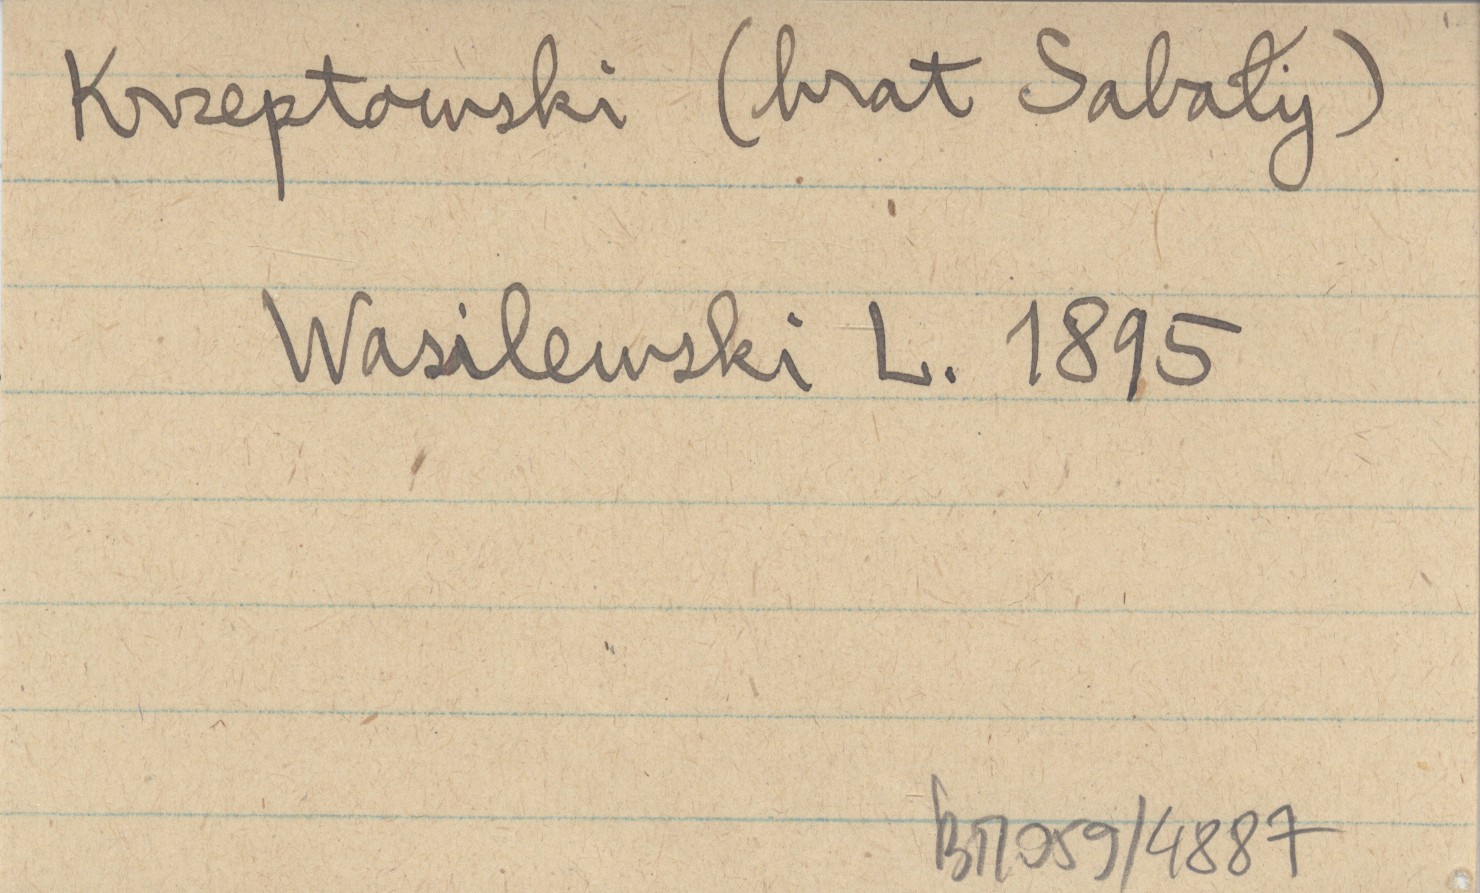 Krzeptowski (brat Sabały)
Wasilewski L. 1895